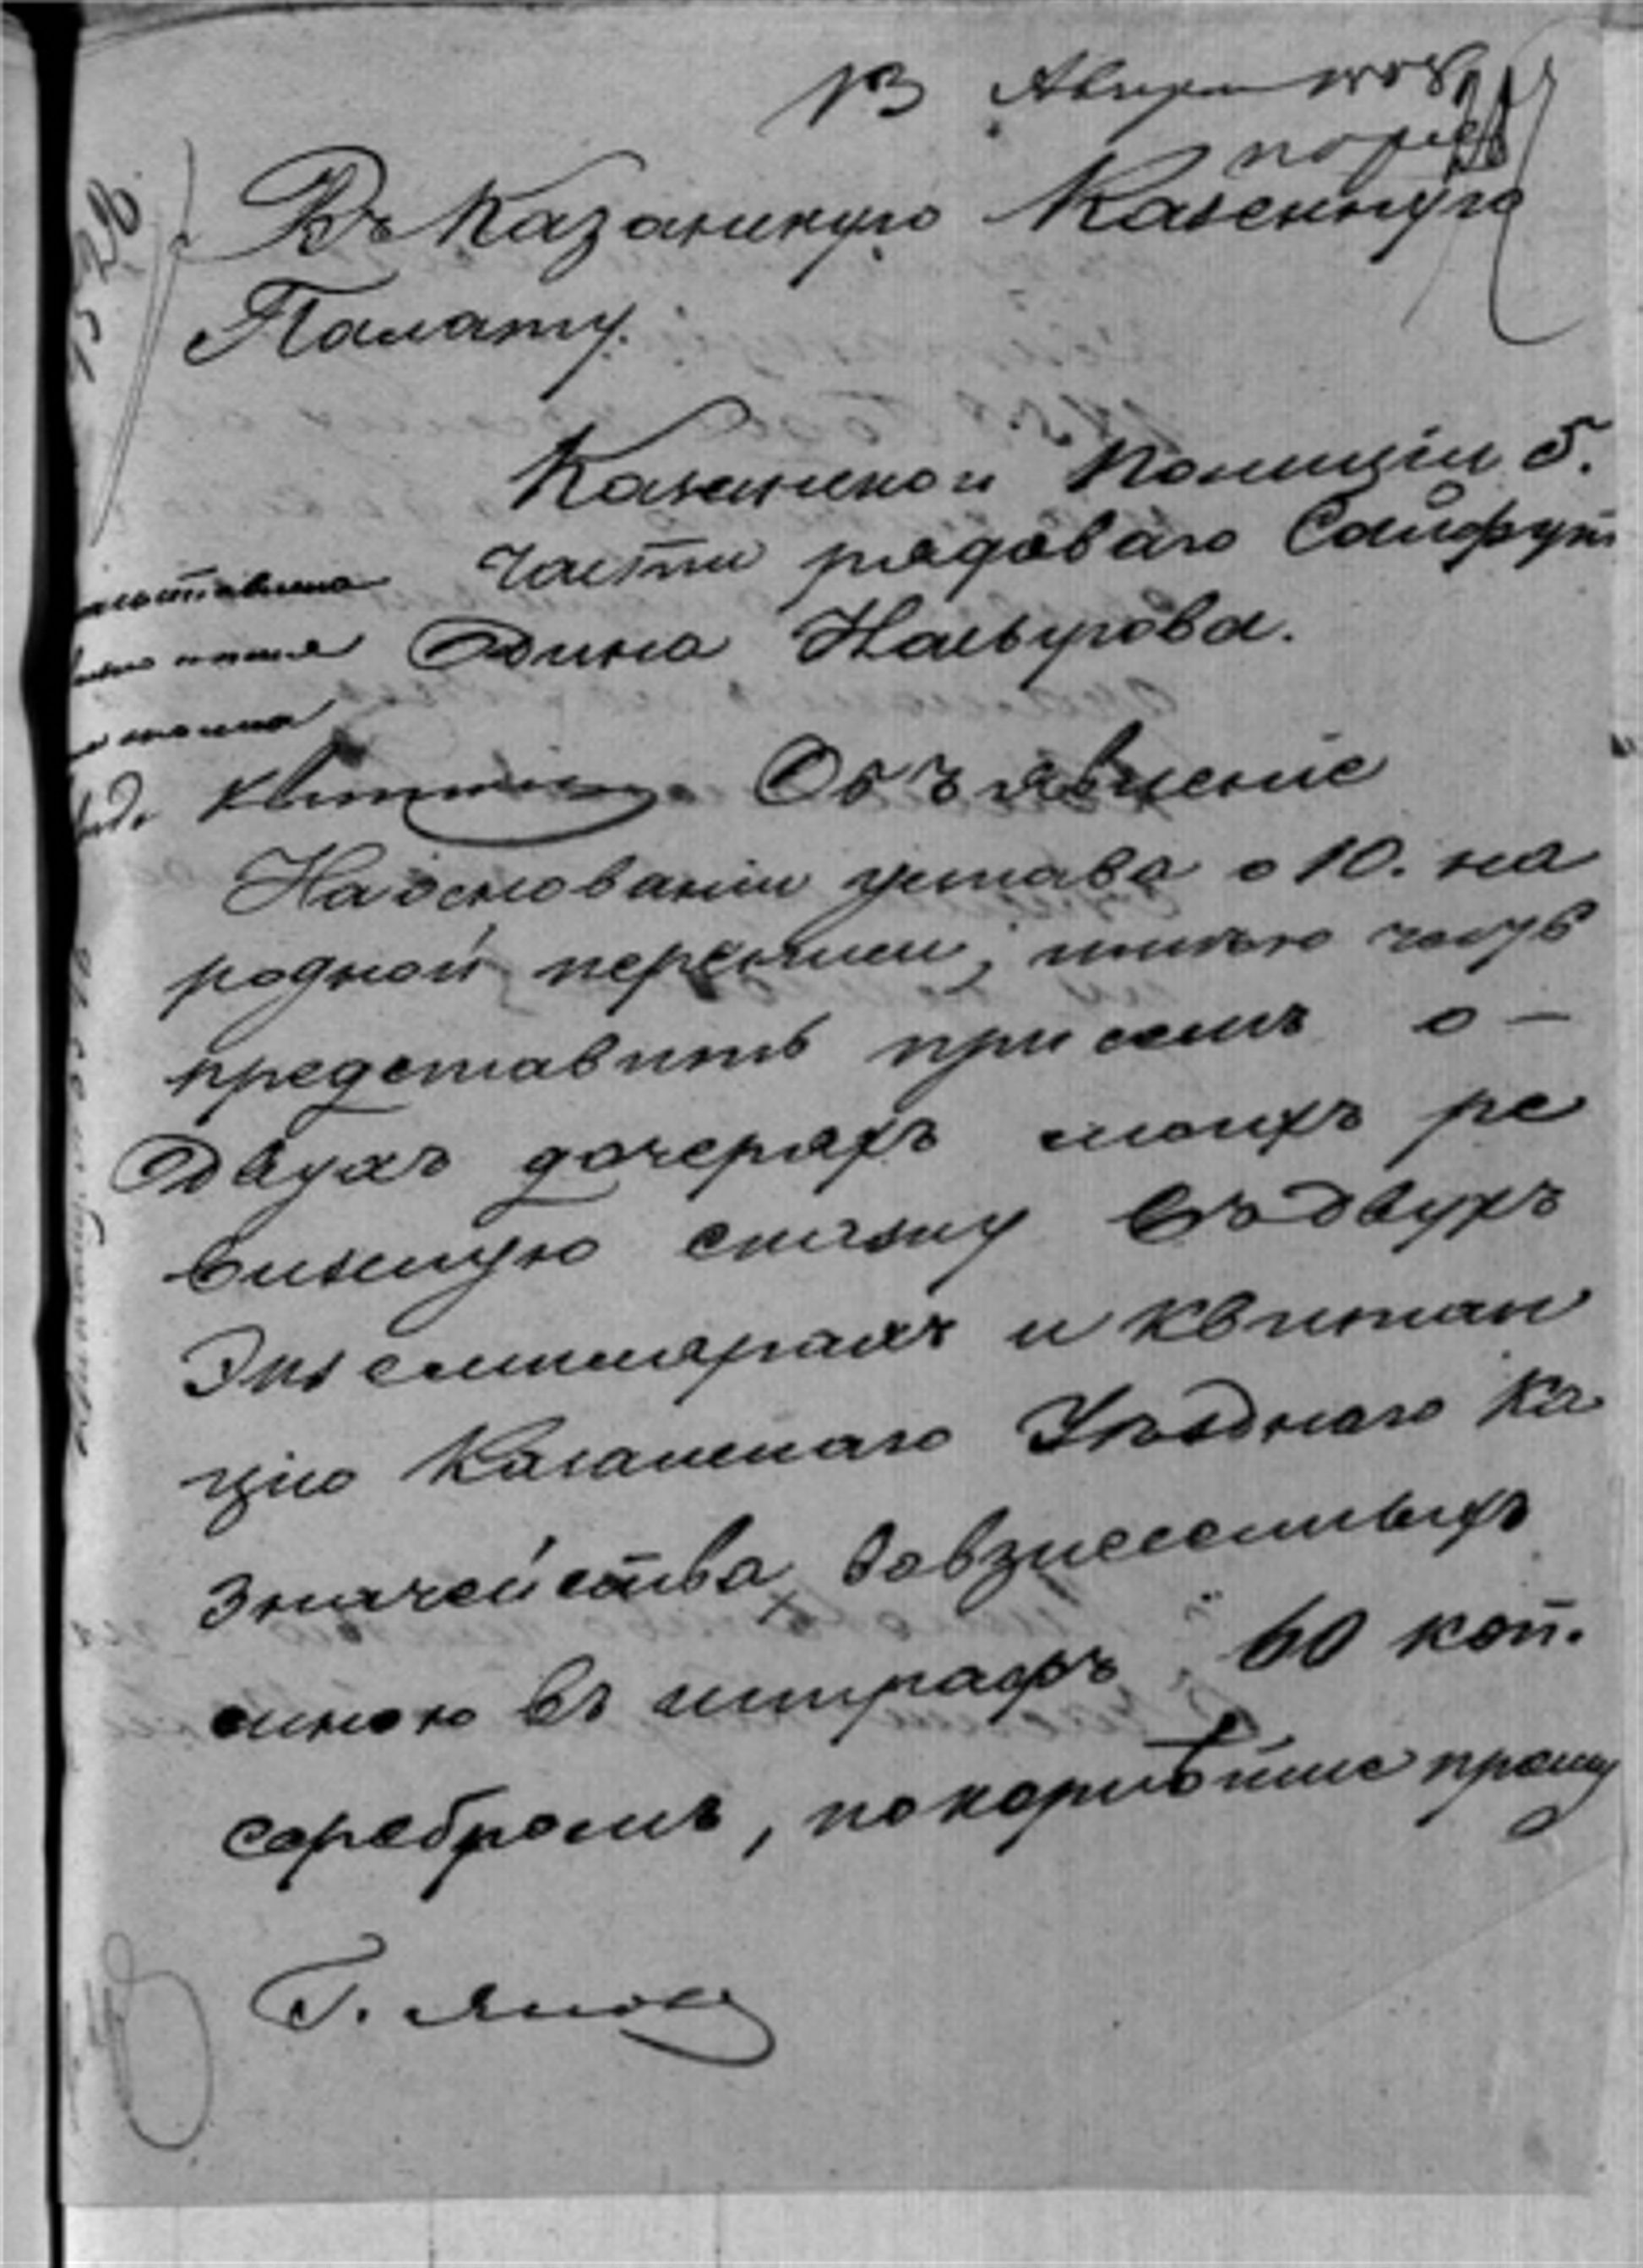 13 Августа
Въ Казанскую Казенную
Палату.
Казанской Полиціи 5.
части рядоваго Сайфут
дина Насырова.
Объявленіе
На основаніи устава о 10. на
родной переписи, имѣю честь
представить при семъ о
двухъ дочеряхъ моихъ ре
визскую сказку въ двухъ
Экземплярахъ и квитан
цію Казанскаго Уѣзднаго Ка
значейства во взнесенныхъ
мною въ штрафъ 60 коп.
серебромъ, покорнѣйше прошу